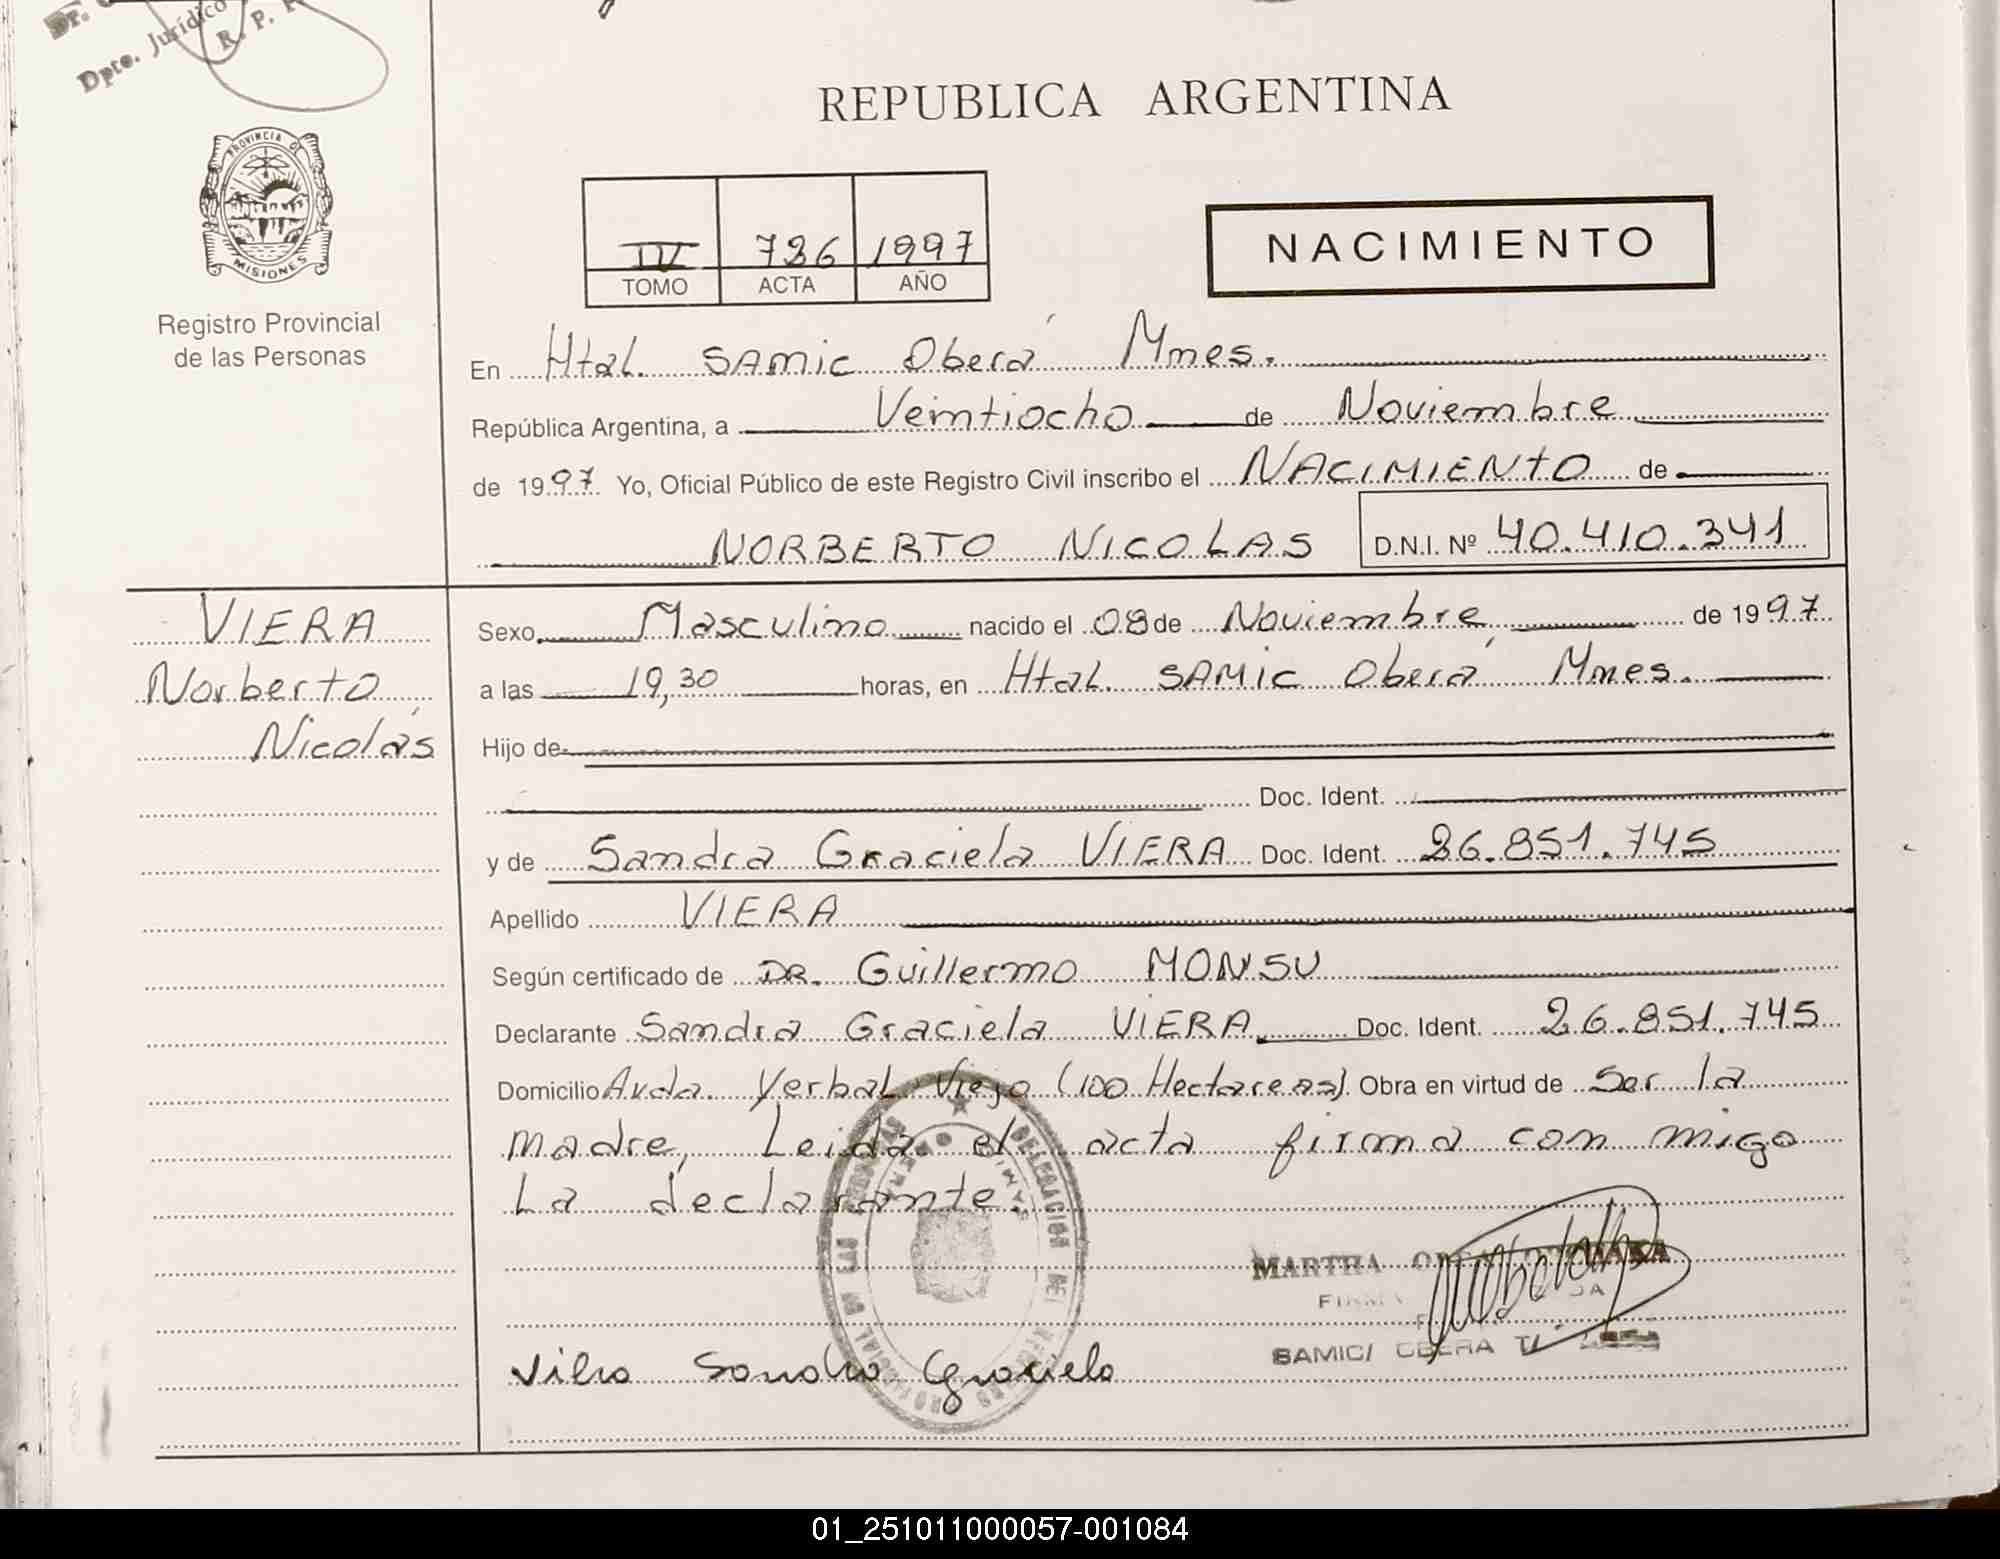 Dpto. Jurídico
R. P. P.
PROVINCIA DE
MISIONES
Registro Provincial
de las Personas
REPUBLICA ARGENTINA
IV 736 1997
TOMO ACTA AÑO
NACIMIENTO
En Htal. SAMIC Oberá Mnes.
República Argentina, a Veintiocho de Noviembre
de 1997 Yo, Oficial Público de este Registro Civil inscribo el NACIMIENTO de
NORBERTO NICOLAS D.N.I. Nº 40.410.341
VIERA
Norberto
Nicolás
Sexo Masculino nacido el 08 de Noviembre de 1997
a las 19,30 horas, en Htal. SAMIC Oberá Mnes.
Hijo de
Doc. Ident.
y de Sandra Graciela VIERA Doc. Ident. 26.851.745
Apellido VIERA
Según certificado de DR. Guillermo MONSU
Declarante Sandra Graciela VIERA Doc. Ident. 26.851.745
Domicilio Avda. Yerbal Viejo (100 Hectareas). Obra en virtud de Ser la
madre, Leida el acta firma con migo
La declarante.
MARTHA
SAMIC/ OBERA
Viera Sandra Graciela
01_251011000057-001084